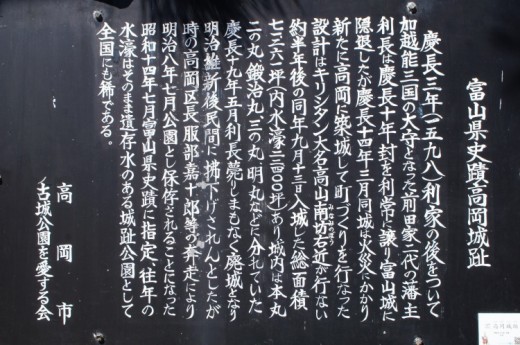 富山県史蹟高岡城趾
慶長三年(一五九八)利家の後をついで
加越能三国の大守となった前田家二代の藩主
利長は慶長十年封を利常に譲り富山城に
隠退したが慶長十四年三月同城は火災にかかり
新たに高岡に築城して町づくりを行なった
設計はキリシタン大名高山南坊右近が行ない
みなみのぼう
約半年後の同年九月十三日入城した総面積
七三六一坪(内水濠三四〇〇坪)あり城内は本丸
二の丸鍛治丸三の丸明丸などに分れていた
慶長十九年五月利長薨りまもなく廃城となり
明治維新後民間に拂下げされんとしたが
時の高岡区長服部嘉十郎等の奔走により
明治八年七月公園として保存されることになった
昭和十四年七月富山県史蹟に指定、往年の
水濠はそのまま遺存水のある城趾公園として
全国にも稀である。
高岡市
古城公園を愛する会